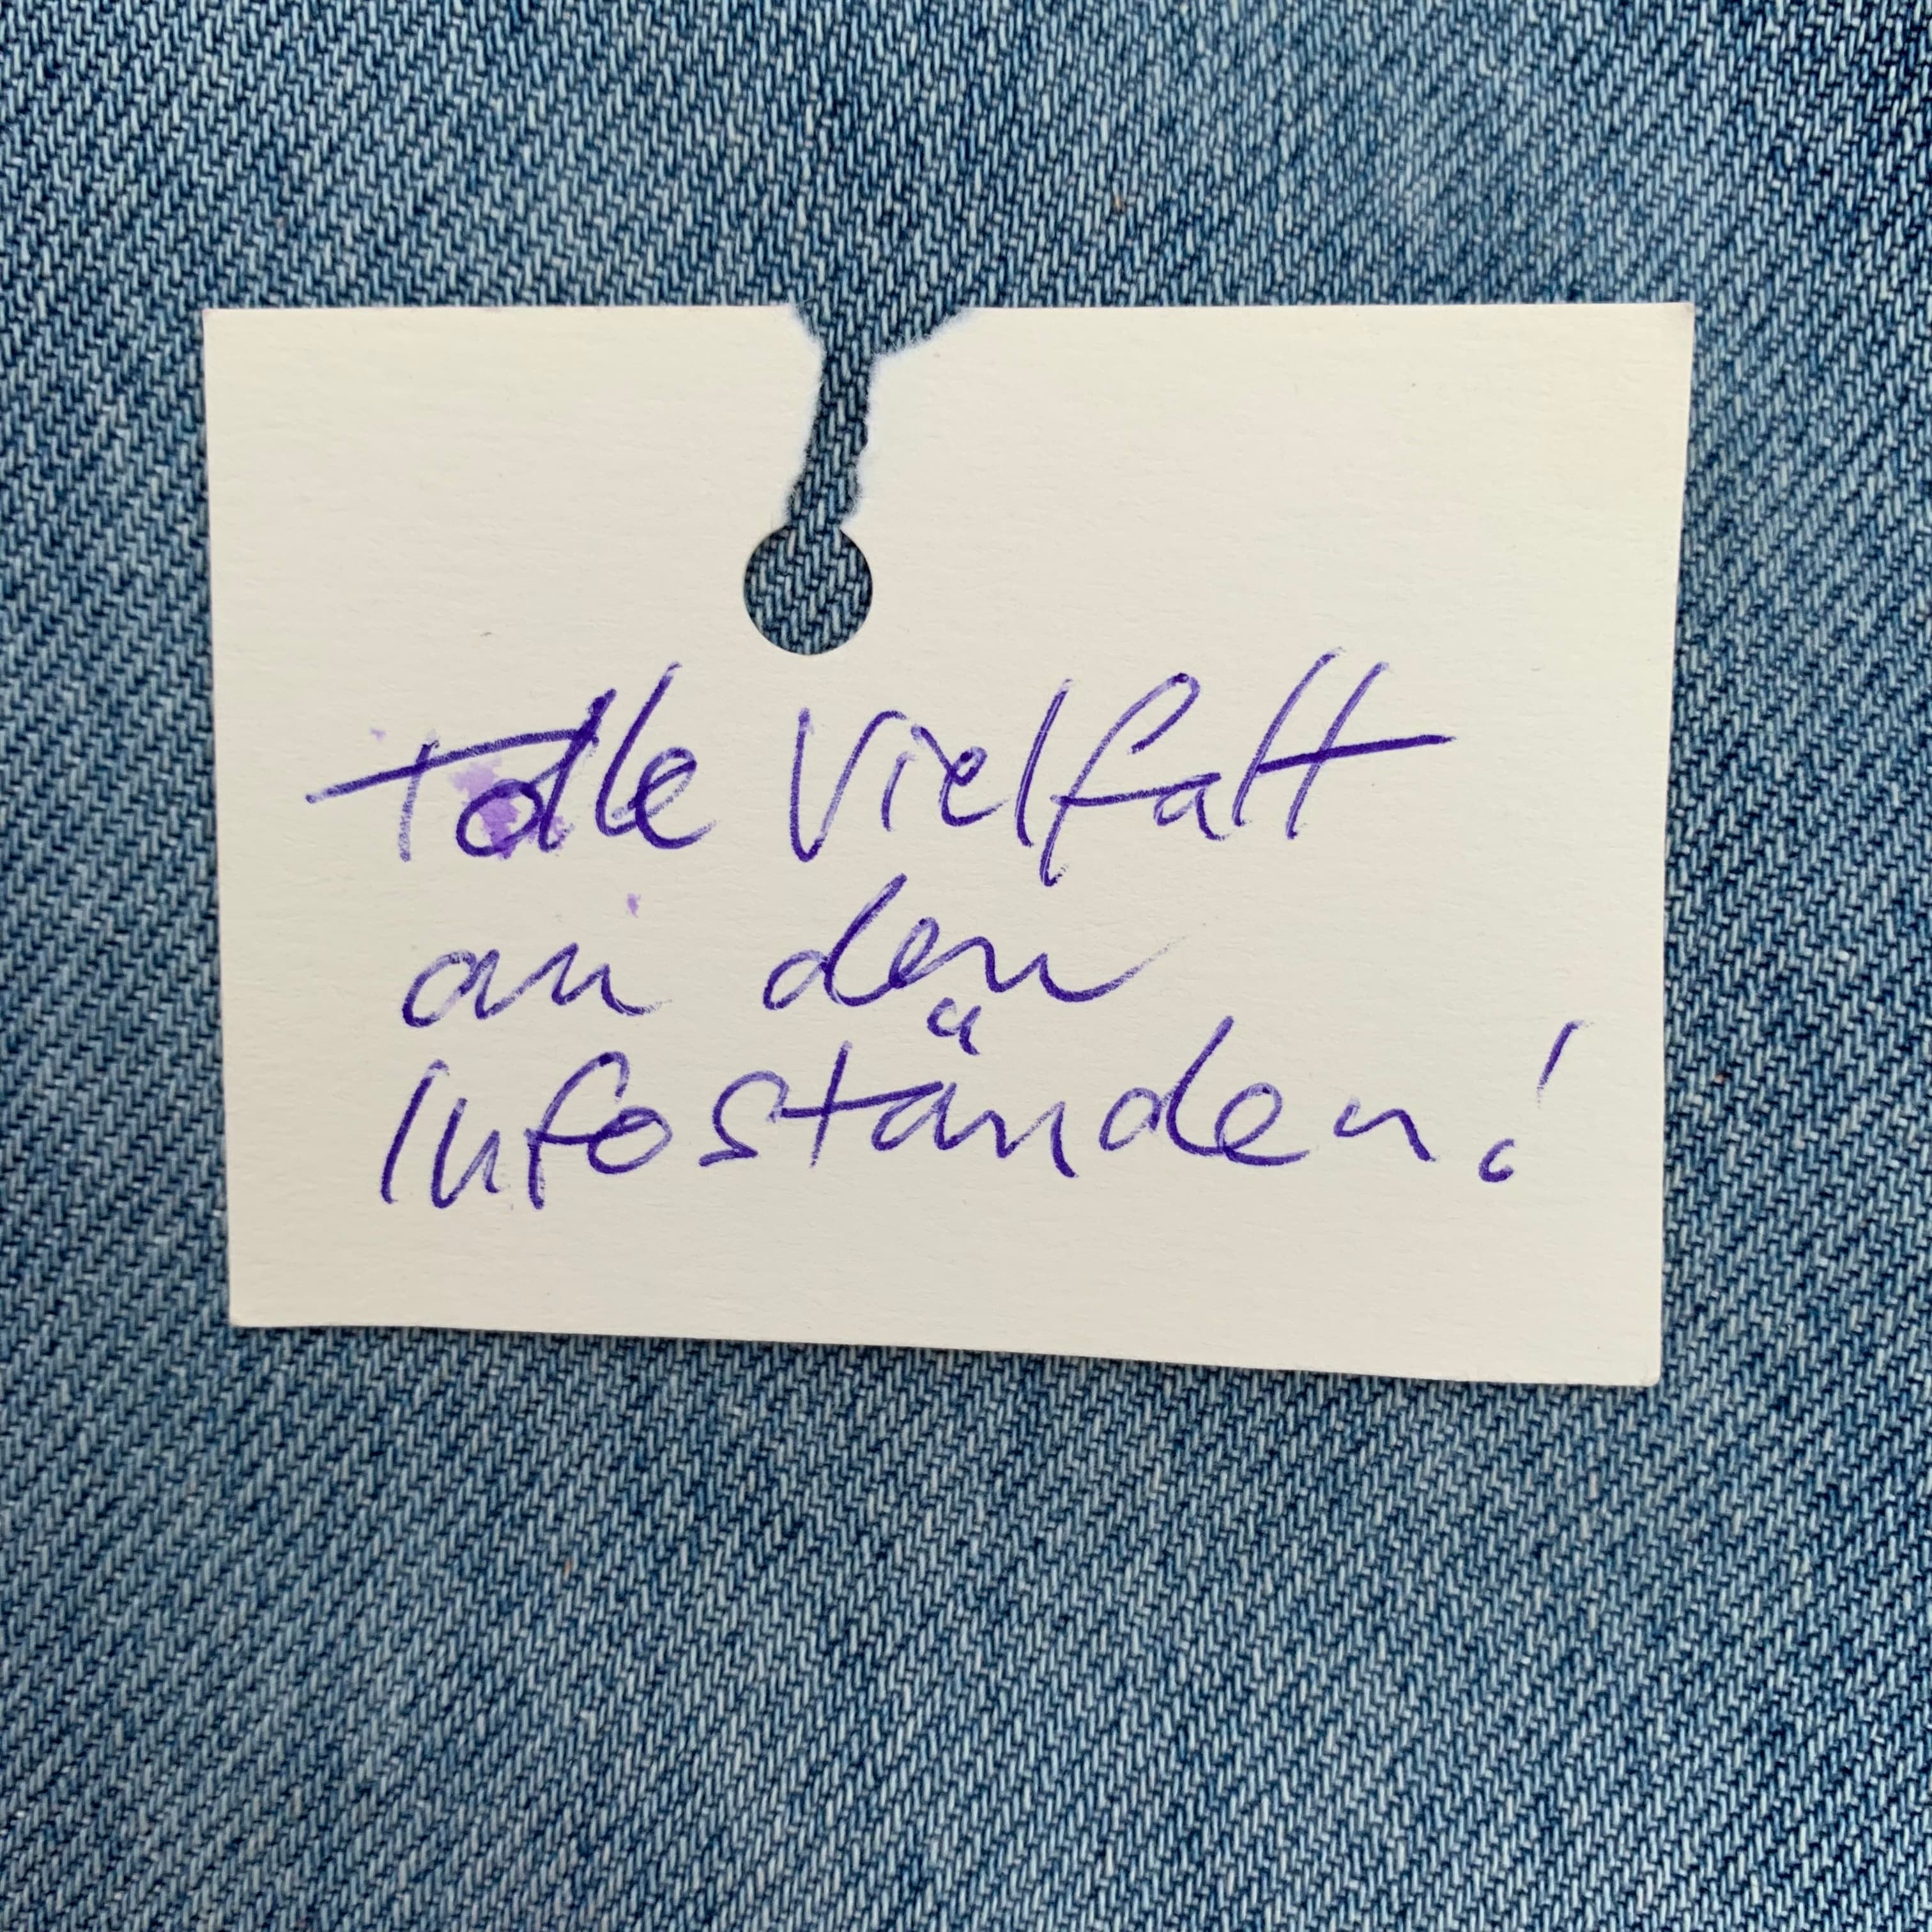 tolle Vielfalt
an den
Infoständen!